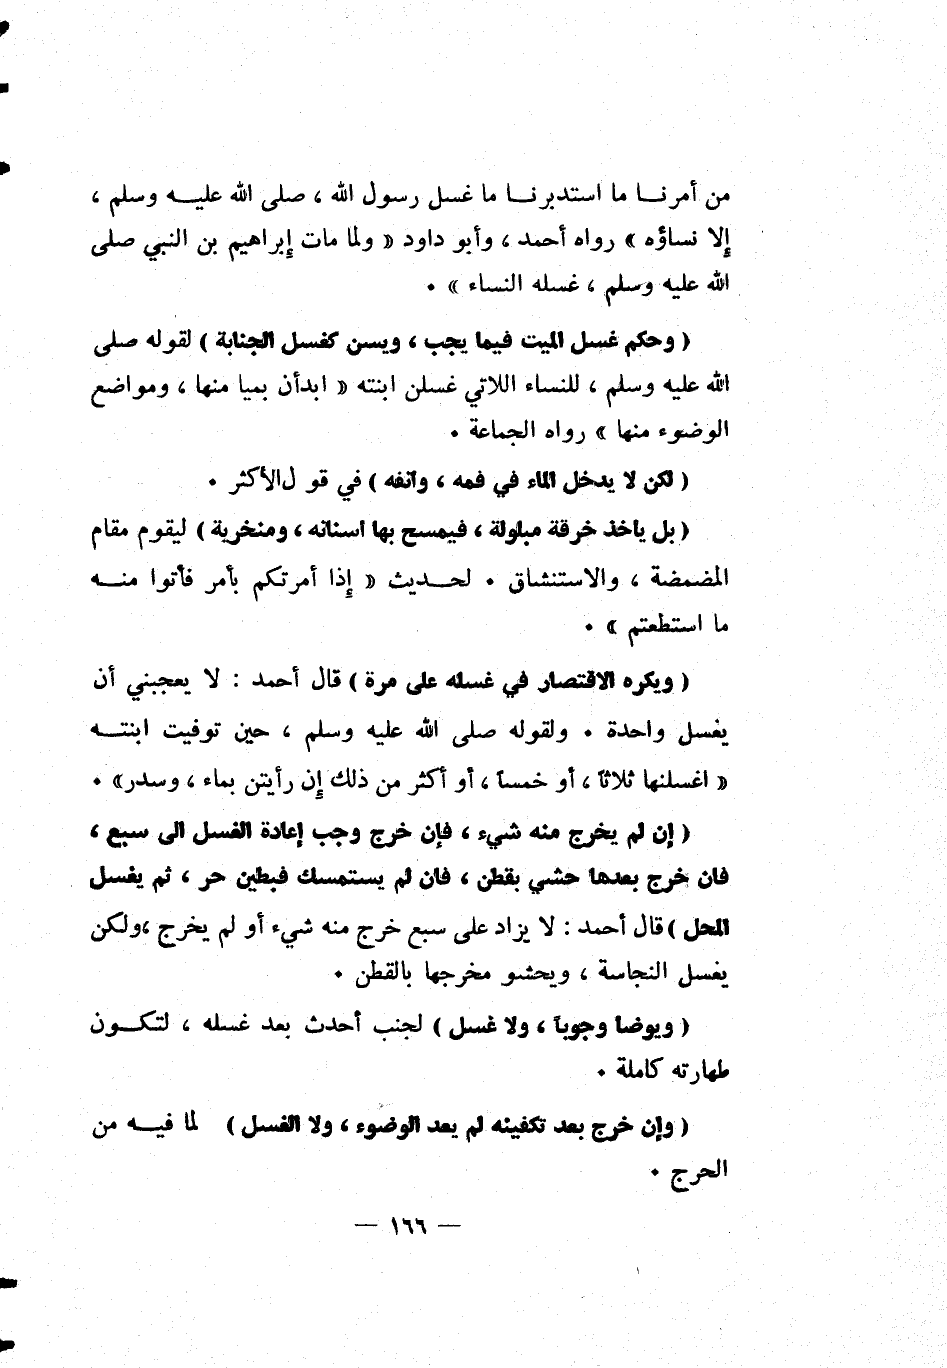 من أمرنا ما استدبرنا ما غسل رسول الله ، صلى الله عليه وسلم ،
إلا نساؤه » رواه أحمد ، وأبو داود « ولما مات إبراهيم بن النبي صلى
الله عليه وسلم ، غسله النساء » .
( وحكم غسل الميت فيما يجب ، ويسن كغسل الجنابة ) لقوله صلى
الله عليه وسلم ، للنساء اللاتي غسلن ابنته « ابدأن بميا منها ، ومواضع
الوضوء منها » رواه الجماعة .
( لكن لا يدخل الماء في فمه ، وأنفه ) في قو ل‌الأكثر .
( بل يأخذ خرقة مبلولة ، فيمسح بها اسنانه ، ومنخرية ) ليقوم مقام
المضمضة ، والاستنشاق . لحديث « إذا أمرتكم بأمر فأتوا منه
ما استطعتم » .
( ويكره الاقتصار في غسله على مرة ) قال أحمد : لا يعجبني أن
يغسل واحدة . ولقوله صلى الله عليه وسلم ، حين توفيت ابنته
« اغسلنها ثلاثاً ، أو خمساً ، أو أكثر من ذلك إن رأيتن بماء ، وسدر» .
( إن لم يخرج منه شيء ، فإن خرج وجب إعادة الغسل الى سبع ،
فان خرج بعدها حشي بقطن ، فان لم يستمسك فبطين حر ، ثم يغسل
المحل ) قال أحمد : لا يزاد على سبع خرج منه شيء أو لم يخرج ،ولكن
يغسل النجاسة ، ويحشو مخرجها بالقطن .
( ويوضأ وجوباً ، ولا غسل ) لجنب أحدث بعد غسله ، لتكون
طهارته كاملة .
( وإن خرج بعد تكفينه لم يعد الوضوء ، ولا الغسل ) لما فيه من
الحرج .
— ١٦٦ —